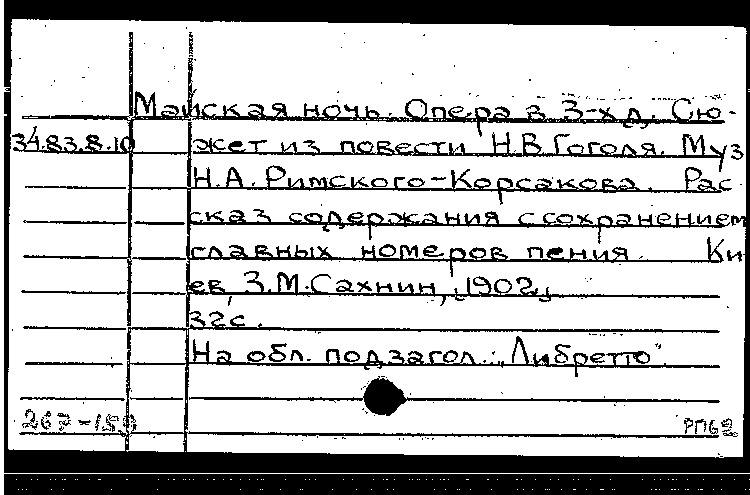 Майская ночь. Опера в 3-х д. Сю-
34.83.8.10 жет из повести Н.В.Гоголя. Муз
Н.А.Римского-Корсакова. Рас
сказ содержания с сохранением
главных номеров пения. Ки
ев, З.М.Сахнин, [1902]
32с.
На обл. подзагол.: "Либретто".
267-159 РПБ2